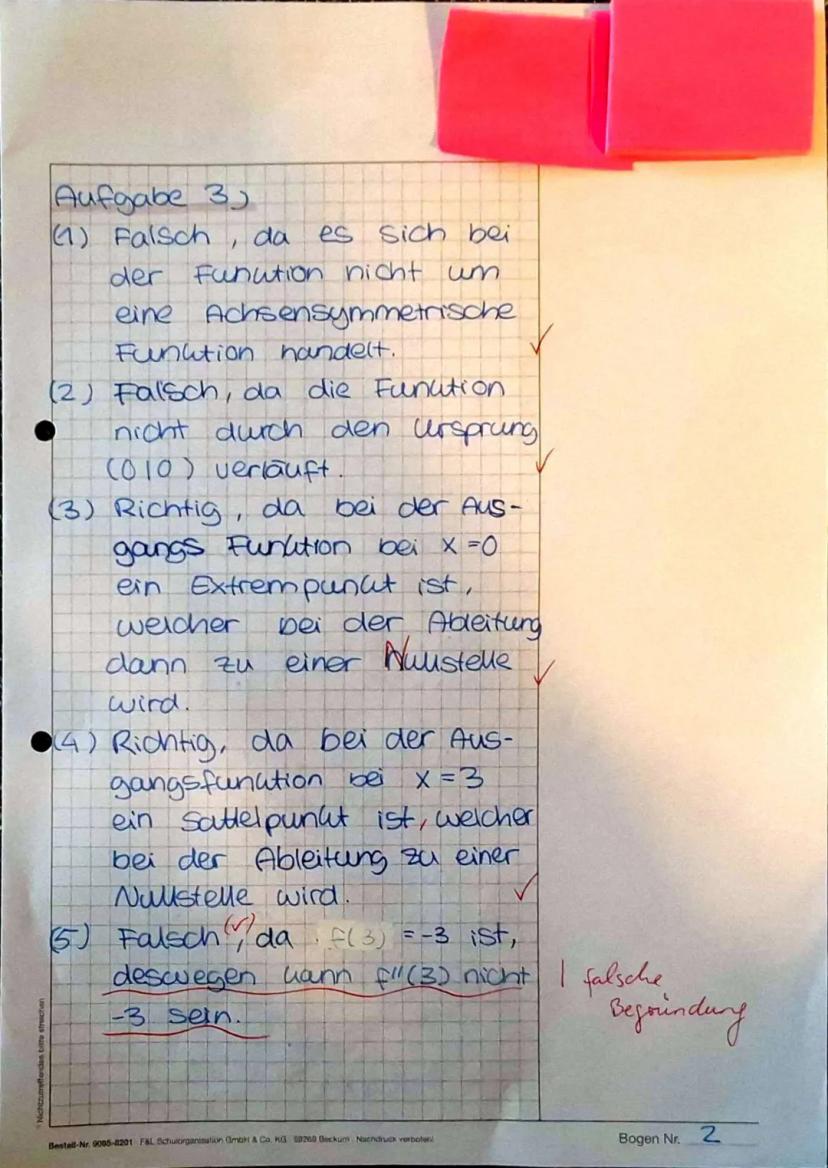 Aufgabe 3)
(1) Falsch, da es sich bei
der Funktion nicht um
eine Achsensymmetrische
Funktion handelt.
(2) Falsch, da die Funktion
nicht durch den Ursprung
(0|0) verläuft.
(3) Richtig, da bei der Aus-
gangs Funktion bei x=0
ein Extrempunkt ist,
welcher bei der Ableitung
dann zu einer Nullstelle
wird.
(4) Richtig, da bei der Aus-
gangsfunktion bei x=3
ein Sattelpunkt ist, welcher
bei der Ableitung zu einer
Nullstelle wird.
(5) Falsch (✓), da f(3) = -3 ist,
deswegen kann f''(3) nicht
-3 sein.
| falsche
Begründung
Nichtzutreffendes bitte streichen
Bestell-Nr. 9085-8201 · F&L Schulorganisation GmbH & Co. KG · 59269 Beckum · Nachdruck verboten!
Bogen Nr. 2